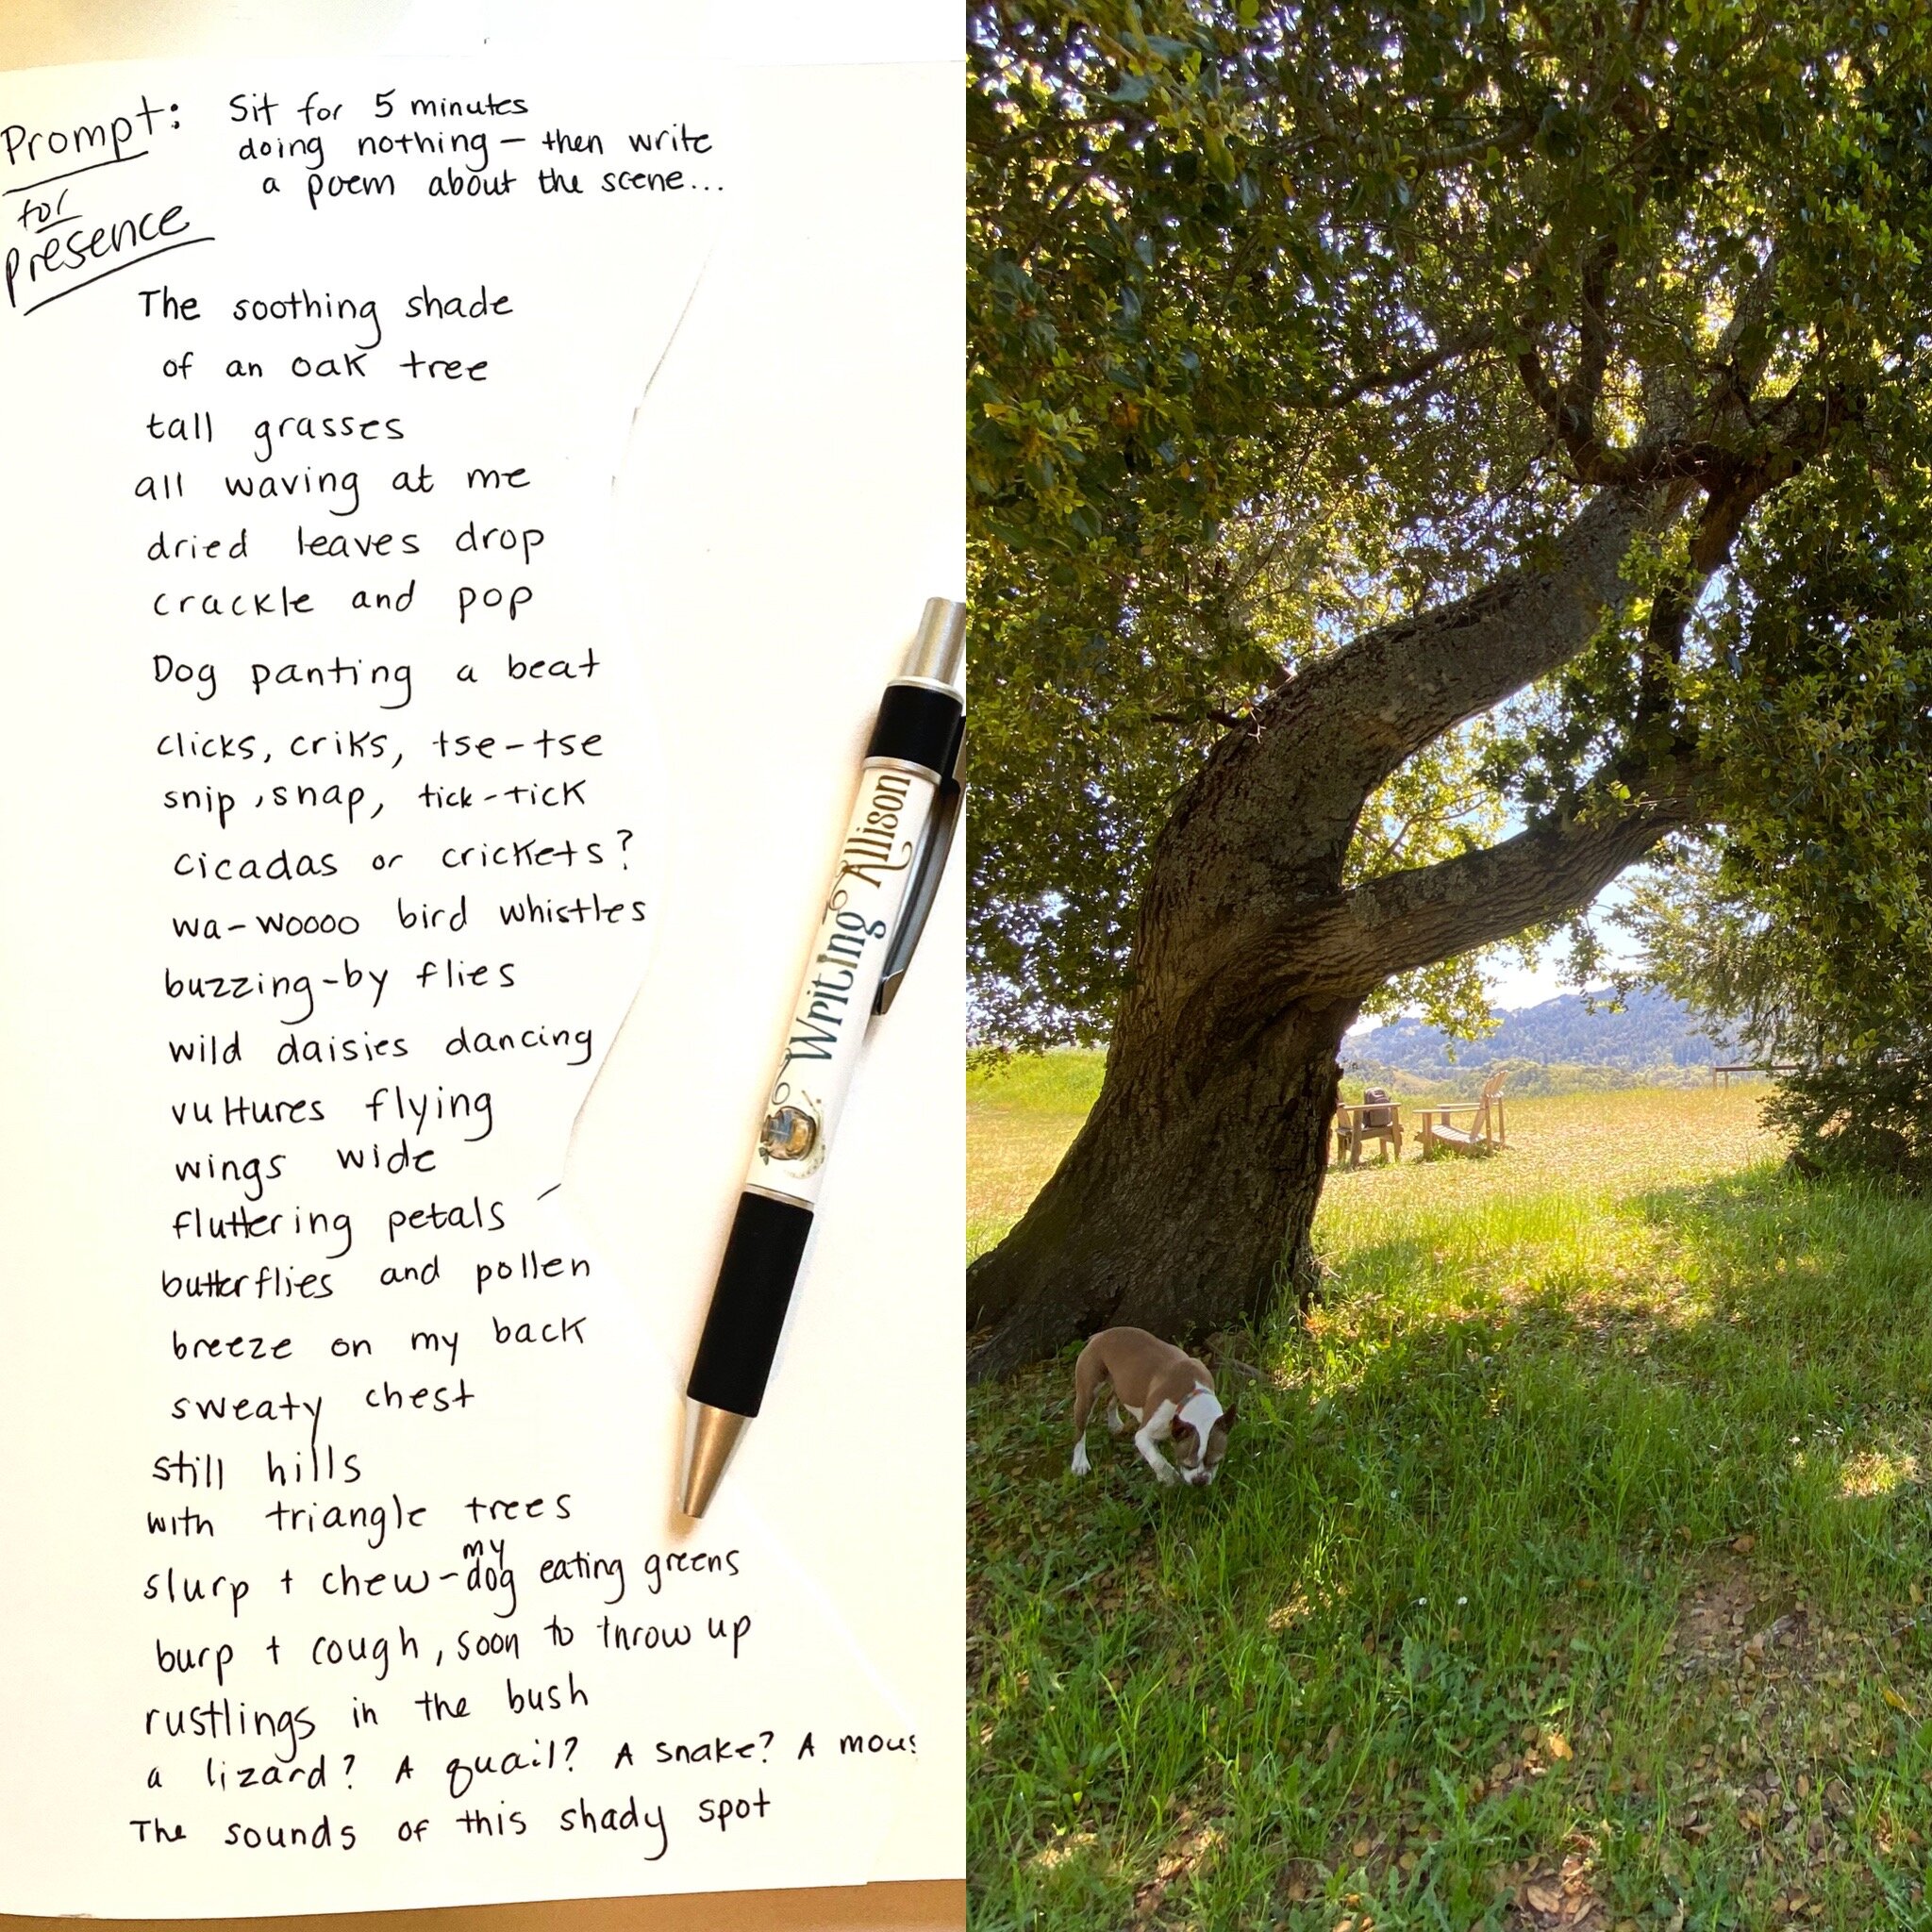 Prompt: Sit for 5 minutes
doing nothing - then write
a poem about the scene...
for
presence
The soothing shade
of an oak tree
tall grasses
all waving at me
dried leaves drop
crackle and pop
Dog panting a beat
clicks, criks, tse-tse
snip, snap, tick-tick
cicadas or crickets?
wa-woooo bird whistles
buzzing-by flies
wild daisies dancing
vultures flying
wings wide
fluttering petals
butterflies and pollen
breeze on my back
sweaty chest
still hills
with triangle trees
slurp + chew - my dog eating greens
burp + cough, soon to throw up
rustlings in the bush
a lizard? A quail? A snake? A mous
The sounds of this shady spot
Writing Allison